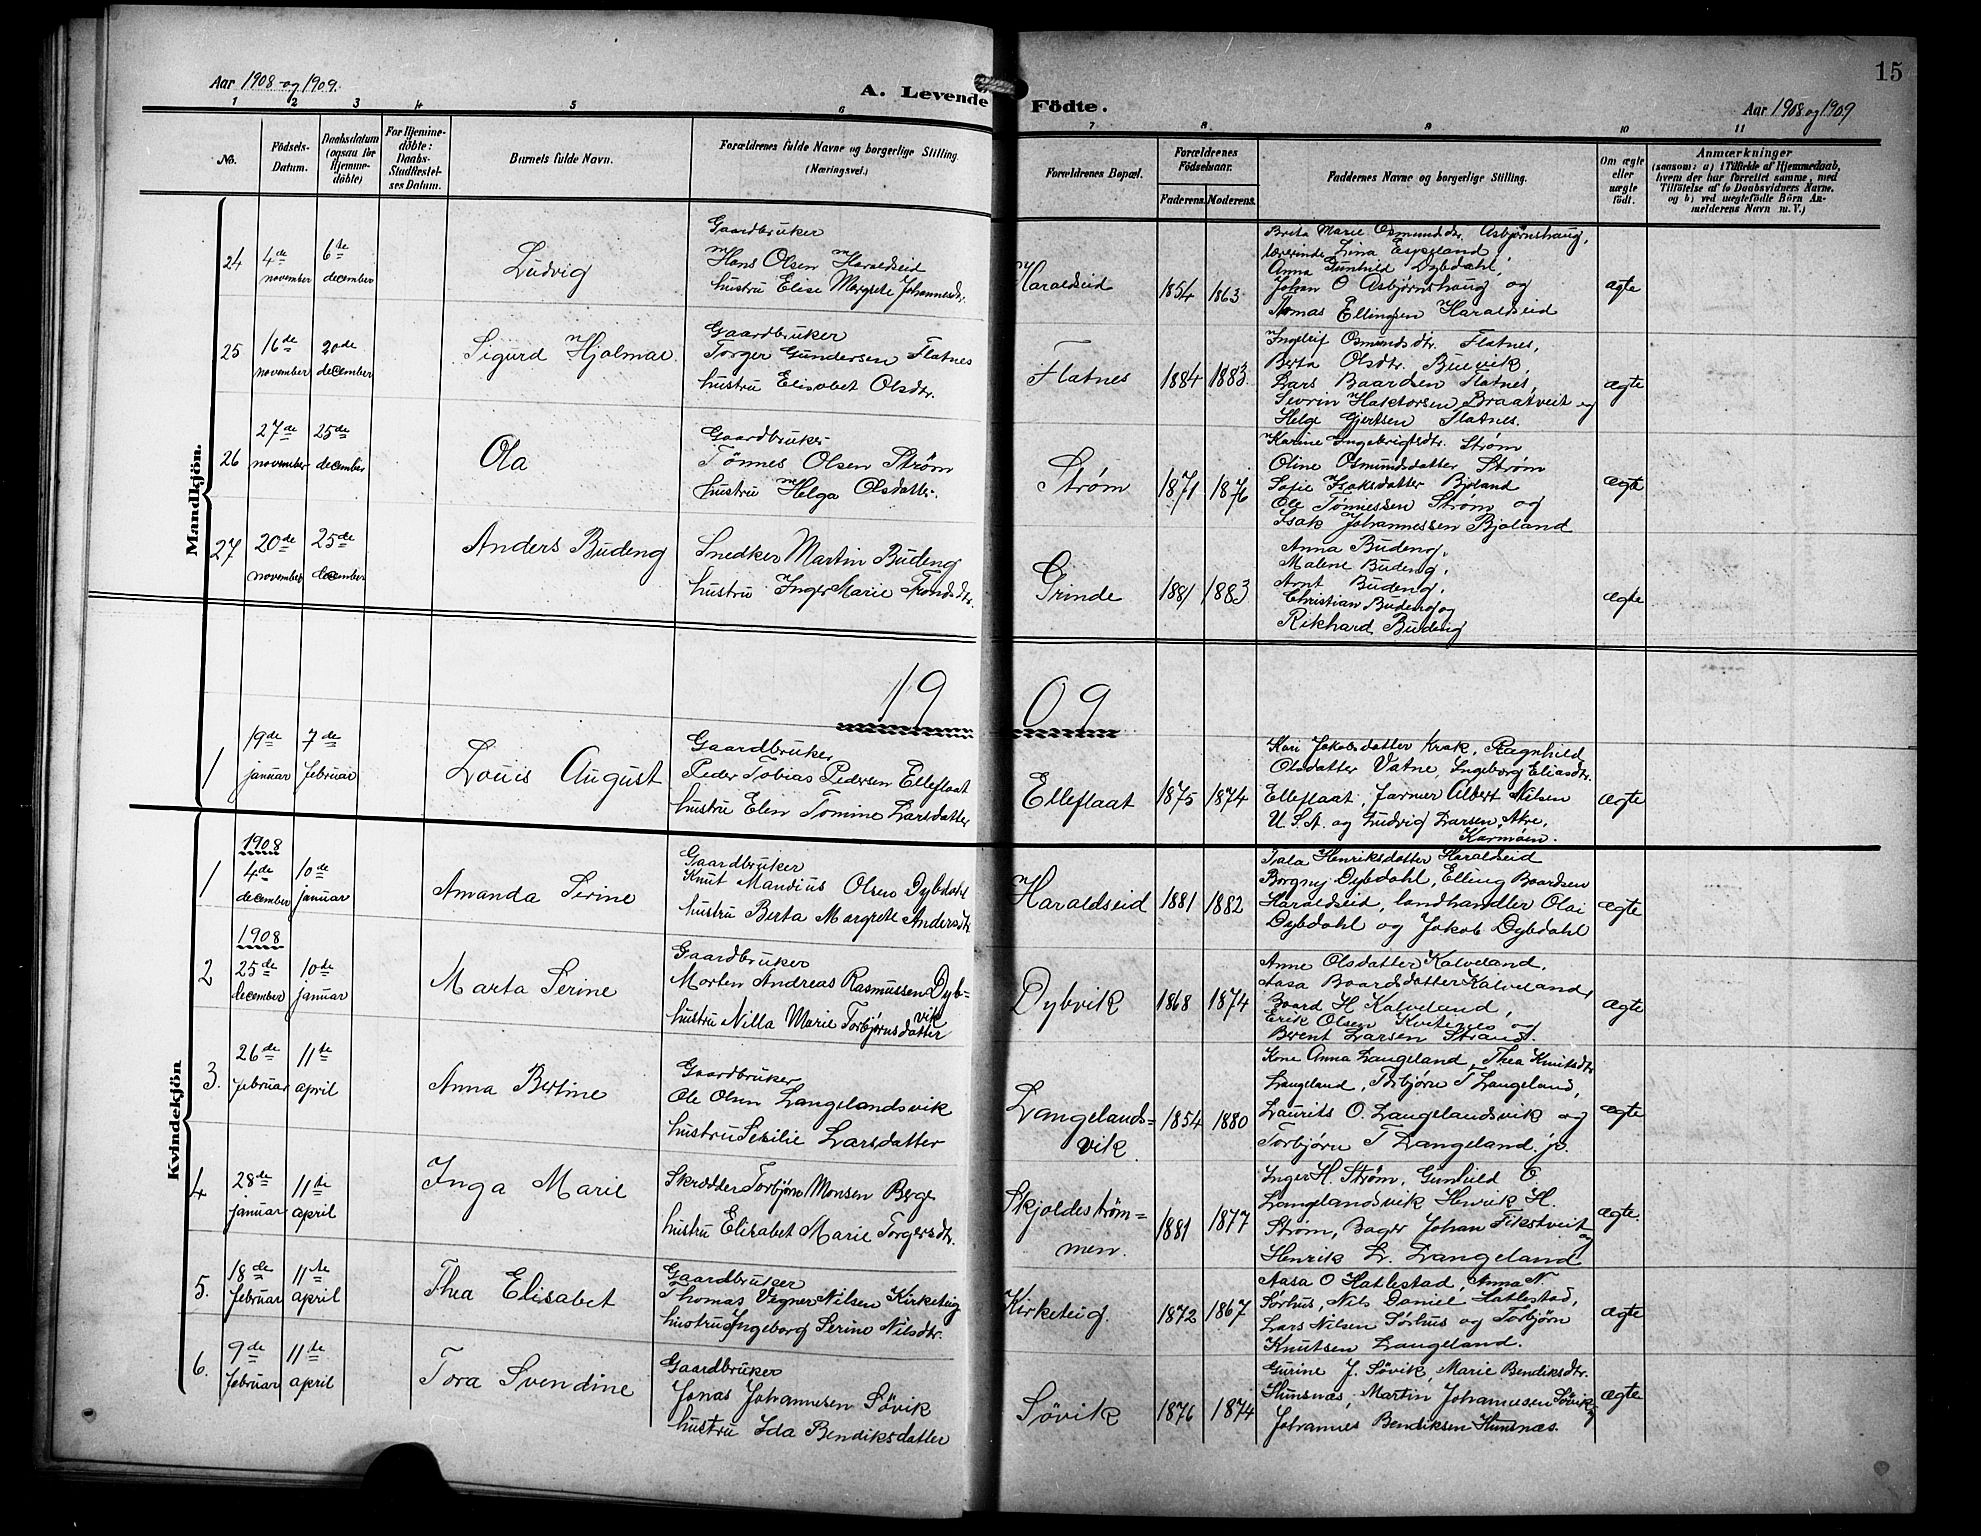 15
Aar 1908 og 1909.
A. Levende Födte.
Aar 1908 og 1909
1 2 3 4 5 6 7 8 9 10 11
No.
Födsels-
Datum.
Daabsdatum
(ogsaa for
Hjemme-
döbte)
For Hjemme-
döbte:
Daabs-
Stadfæstel-
ses Datum.
Barnets fulde Navn.
Forældrenes fulde Navne og borgerlige Stilling
(Næringsvei.)
Forældrenes Bopæl.
Forældrenes
Födselsaar.
Faderens. Moderens.
Faddernes Navne og borgerlige Stilling.
Om ægte
eller
uægte
födt.
Anmærkninger
(saasom: a) i Tilfælde af Hjemmedaab,
hvem der har forrettet samme, med
Tilföielse af to Daabsvidners Navne.
og b) ved uægtefödte Börn An-
melderens Navn m. V.)
Mandkjön.
24
4de
november
6te
december
Ludvig
Gaardbruker
Hans Olsen Haraldseid
hustru Elise Margrete Johannesdtr.
Haraldseid
1854 1863
Brita Marie Osmundsdtr. Asbjørnshaug,
lærerinde Lina Espeland,
Anna Gunhild Dybdahl,
Johan O Asbjørnshaug og
Tomas Ellingsen Haraldseid
ægte
25
16de
november
20de
december
Sigurd Hjalmar.
Gaardbruker
Torger Gundersen Flatnes
hustru Elisabet Olsdtr.
Flatnes
1884 1883.
Ingeleif Osmundsdtr. Flatnes,
Berta Olsdtr.
Lars Baardsen Flatnes,
Sevrin Haktorsen Braatveit og
Helge Gjertsen Flatnes.
ægte
26
27de
november
25de
december
Ola
Gaardbruker
Tönnes Olsen Strøm
hustru Helga Olsdatter.
Strøm
1871 1876
Karine Ingebrigtsdtr. Strøm
Oline Osmundsdatter Strøm
Sofie Isaksdatter Bjoland
Ole Tönnessen Strøm og
Isak Johannessen Bjoland
ægte
27
20de
november
25de
december
Anders Budeng
Snedker Martin Budeng
hustru Inger Marie Trondsdtr.
Grinde
1881 1883
Anna Budeng,
Malene Budeng,
Arnt Budeng,
Christian Budeng og
Rikhard Budeng
ægte
1909
1
19de
januar
7de
februar
Louis August
Gaardbruker
Peder Tobias Pedersen Elleflaat
hustru Elen Tomine Larsdatter
Elleflaat
1875 1874
Kari Jakobsdatter Krak, Ragnhild
Olsdatter Vatne, Ingeborg Eliasdtr.
Elleflaat, farmer Albert Nilsen
U.S.A. og Ludvig Larsen, Akre,
Karmøen.
ægte
Kvindekjön
1
1908
4de
december
10de
januar
Amanda Serine
Gaardbruker
Knut Mandius Olsen Dybdahl
hustru Berta Margrete Andersdtr.
Haraldseid
1881 1882
Henriksdatter Haraldseid
Borgny Dybdahl, Elling Baardsen
Haraldseid, landhandler Olai
Dybdahl og Jakob Dybdahl
ægte
2
1908
25de
december
10de
januar
Marta Serine
Gaardbruker
Morten Andreas Rasmussen Dyb-
vik
hustru Nilla Marie Torbjørnsdatter
Dybvik
1868 1874
Anne Olsdatter Kalveland,
Aasa Baardsdatter Kalveland,
Baard H Kalveland,
Erik Olsen Kvitenes og
Berent Larsen Strand.
ægte
3.
26de
februar
11te
april
Anna Bertine
Gaardbruker
Ole Olsen Langelandsvik
hustru Serilie Larsdatter
Langelands-
vik.
1854 1880
Kone Anna Langeland, Thea Knutsdtr
Langeland, Torbjørn T Langeland,
Laurits O. Langelandsvik og
Torbjørn T Langeland. jr.
ægte
4
28de
januar
11te
april
Inga Marie
Skrædder Torbjørn Monsen Berge
hustru Elisabet Marie Torgersdtr.
Skjoldestrøm-
men.
1881 1877
Inger H. Strøm, Gunhild O
Langelandsvik Henrik H.
Strøm, Bager Johan Fikstveit
og
Henrik L. Langeland
ægte.
5.
18de
februar
11te
april
Thea Elisabet
Gaardbruker
Thomas Vegner Nilsen Kirketeig
hustru Ingeborg Serine Nilsdtr.
Kirketeig.
1872 1867
Aasa O Hatlestad, Anna N
Sørhus, Nils Daniel Hatlestad,
Lars Nilsen Sørhus og Torbjørn
Knutsen Langeland.
ægte
6.
9de
februar
11te
april
Tora Svendine
Gaardbruker
Jonas Johannesen Søvik
hustru Ida Bendiksdatter
Søvik
1876 1874
Gurine J. Søvik, Marie Bendiksdtr.
Hunsnæs, Martin Johannesen Søvik og
Johannes Bendiksen Hunsnæs.
ægte